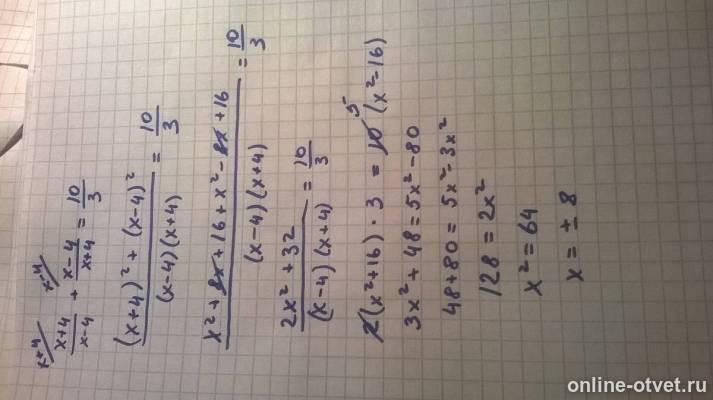 x+4/ x-4/
x+4/x-4 + x-4/x+4 = 10/3
(x+4)²+(x-4)²/(x-4)(x+4) = 10/3
x²+8x+16+x²-8x+16/(x-4)(x+4) = 10/3
2x²+32/(x-4)(x+4) = 10/3
2(x²+16)·3 = 10 5 (x²-16)
3x²+48=5x²-80
48+80=5x²-3x²
128=2x²
x²=64
x=±8
online-otvet.ru